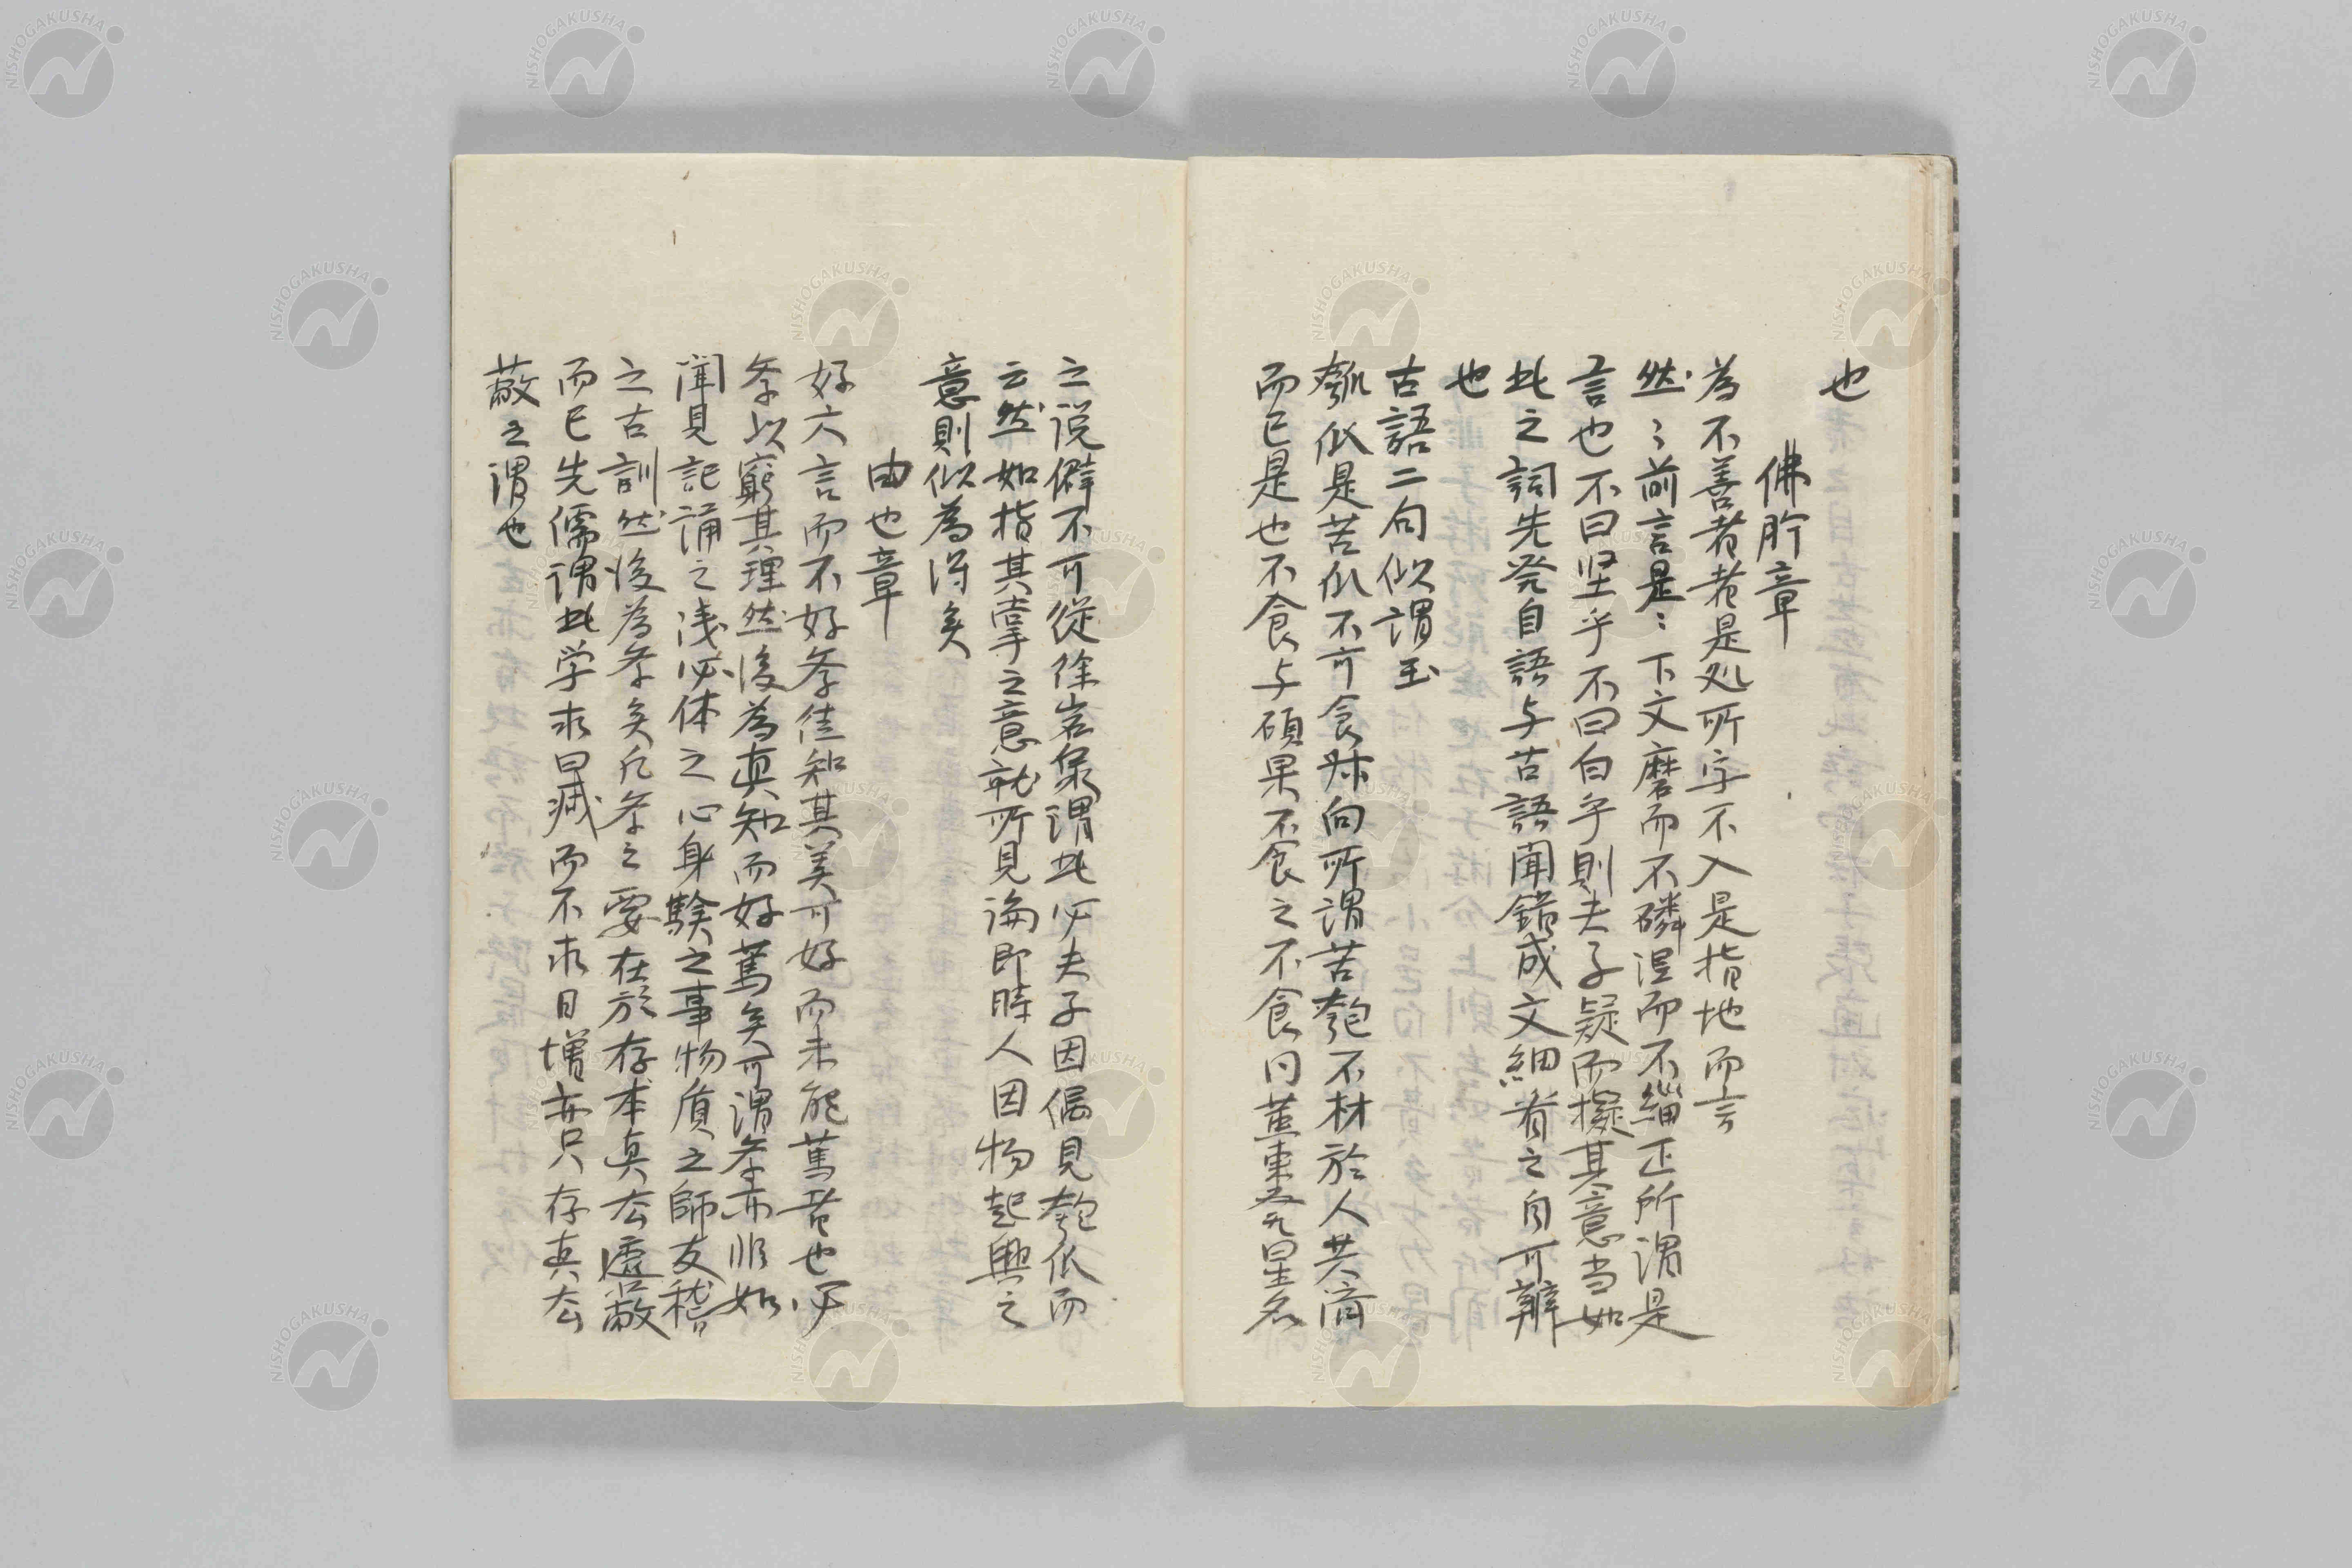 也
佛肸章
為不善者者是処所字不入是指地而言
然〻前言是〻下文磨而不磷涅而不緇正所謂是
言也不曰坚乎不曰白乎則夫子疑而擬其意当如
此之詞先発自語与古語聞錯成文細看之自可辨
也
古語二句似謂玉
瓠瓜是苦瓜不可食叔向所謂苦匏不材於人共濟
而已是也不食与碩果不食之不食同董東星名
之说僻不可從徐岩泉謂此必夫子因偶見匏瓜而
云然如指其掌之意就所見論即時人因物起興之
意則似為得矣
由也章
好六言而不好孝徒知其美可好而未能篤者也必
孝以窮其理然後為真知而好篤矣可謂孝亦非如
聞見記誦之浅必体之心身驗之事物質之師友稽
之古訓然後為孝矣凡孝之要在於存本真去遮蔽
而已先儒謂此学求日减而不求日增亦只存真去
蔽之謂也
NISHOGAKUSHA